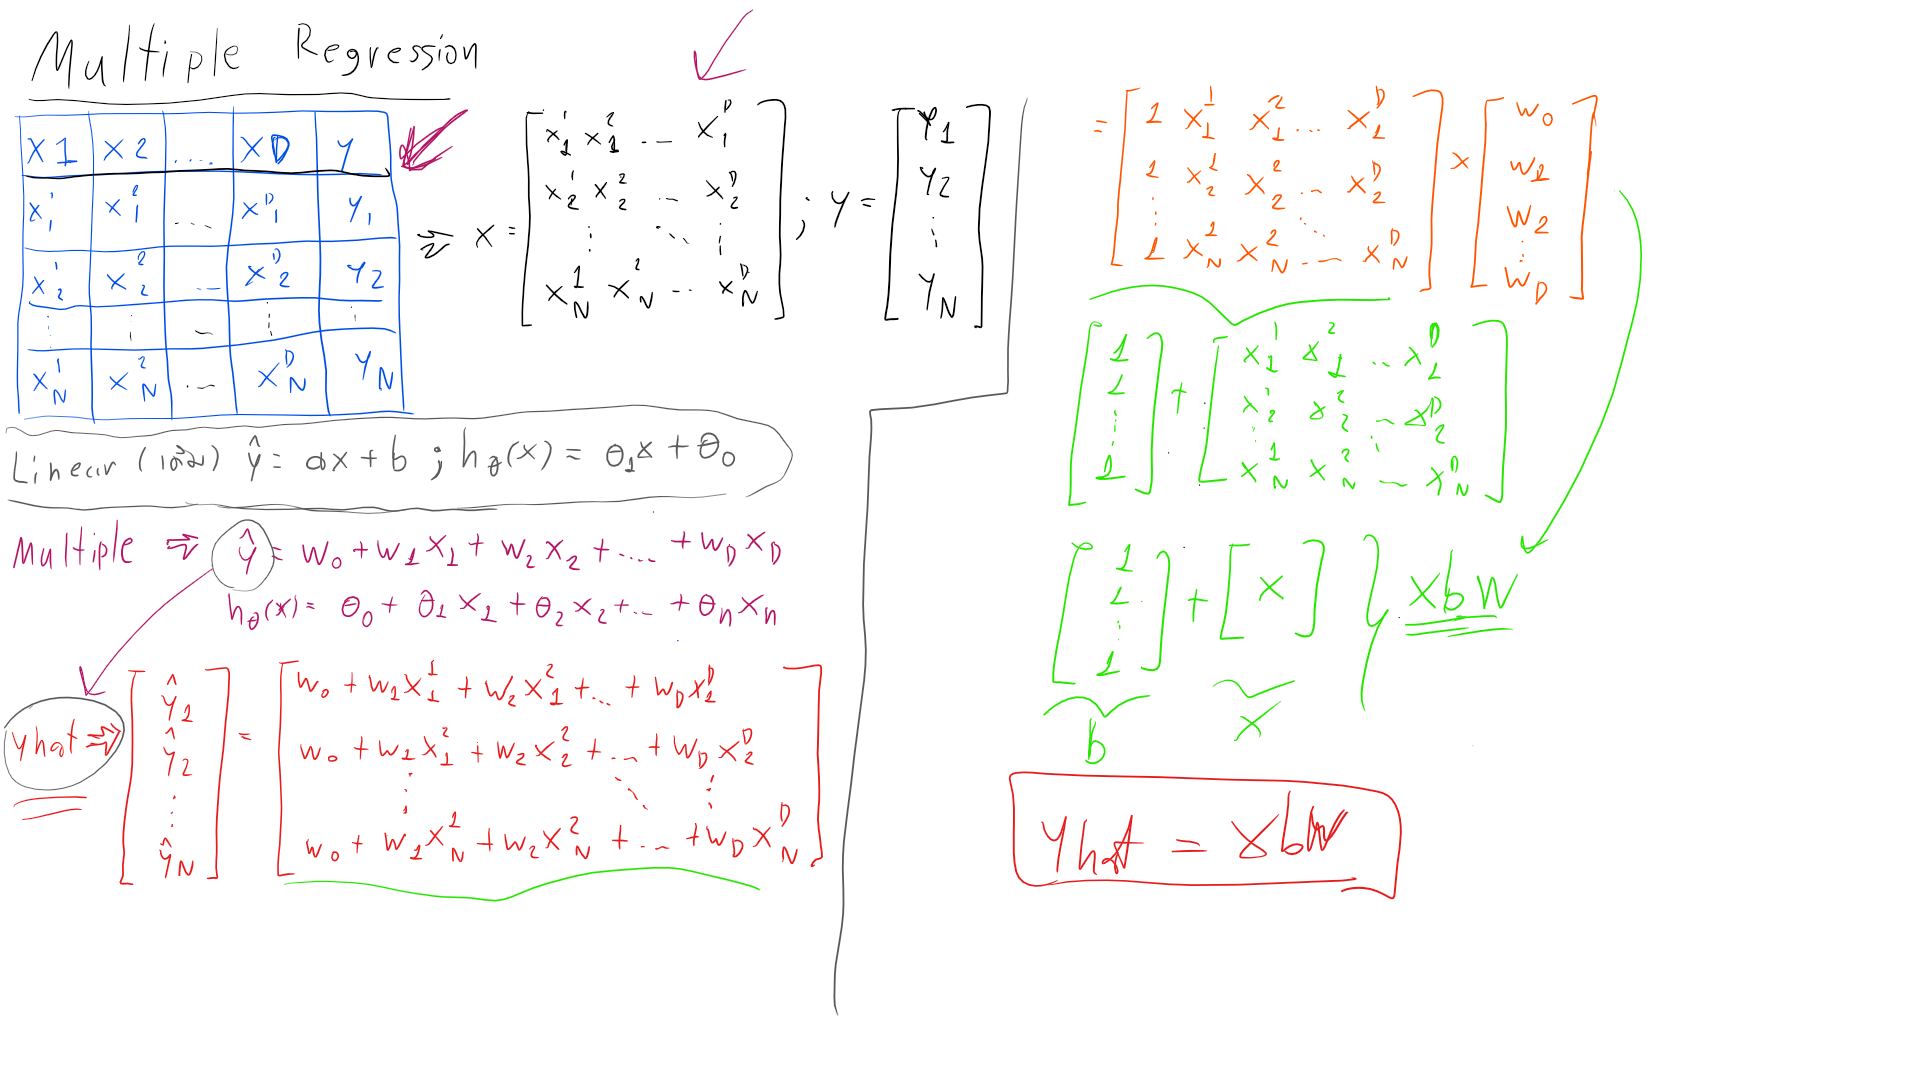 Multiple Regression
X1 X2 .... XD Y
x₁¹ x₁² ... x₁ᴰ y₁
x₂¹ x₂² ... x₂ᴰ y₂
⋮ ⋮ ... ⋮ ⋮
x_N¹ x_N² ... x_Nᴰ y_N
⇒ X = [ x₁¹ x₁² ... x₁ᴰ
x₂¹ x₂² ... x₂ᴰ
⋮ ⋱ ⋮
x_N¹ x_N² ... x_Nᴰ ] ; Y = [ Y₁
Y₂
⋮
Y_N ]
Linear ŷ = ax + b ; h_θ(x) = θ₁x + θ₀
Multiple ⇒ ŷ = w₀ + w₁x₁ + w₂x₂ + .... + w_D x_D
h_θ(x) = θ₀ + θ₁x₁ + θ₂x₂ + ... + θ_n x_n
yhat ⇒ [ ŷ₁
ŷ₂
⋮
ŷ_N ] = [ w₀ + w₁x₁¹ + w₂x₁² + ... + w_D x₁ᴰ
w₀ + w₁x₁² + w₂x₂² + ... + w_D x₂ᴰ
⋮ ⋱ ⋮
w₀ + w₁x_N¹ + w₂x_N² + ... + w_D x_Nᴰ ]
= [ 1 x₁¹ x₁² ... x₁ᴰ
1 x₂¹ x₂² ... x₂ᴰ
⋮ ⋱
1 x_N¹ x_N² ... x_Nᴰ ] × [ w₀
w₁
w₂
⋮
w_D ]
[ 1
1
⋮
1 ] + [ x₁¹ x₁² ... x₁ᴰ
x₂¹ x₂² ... x₂ᴰ
⋮ ⋱
x_N¹ x_N² ... x_Nᴰ ]
[ 1
1
⋮
1 ] + [ X ] } XbW
b X
yhat = XbW